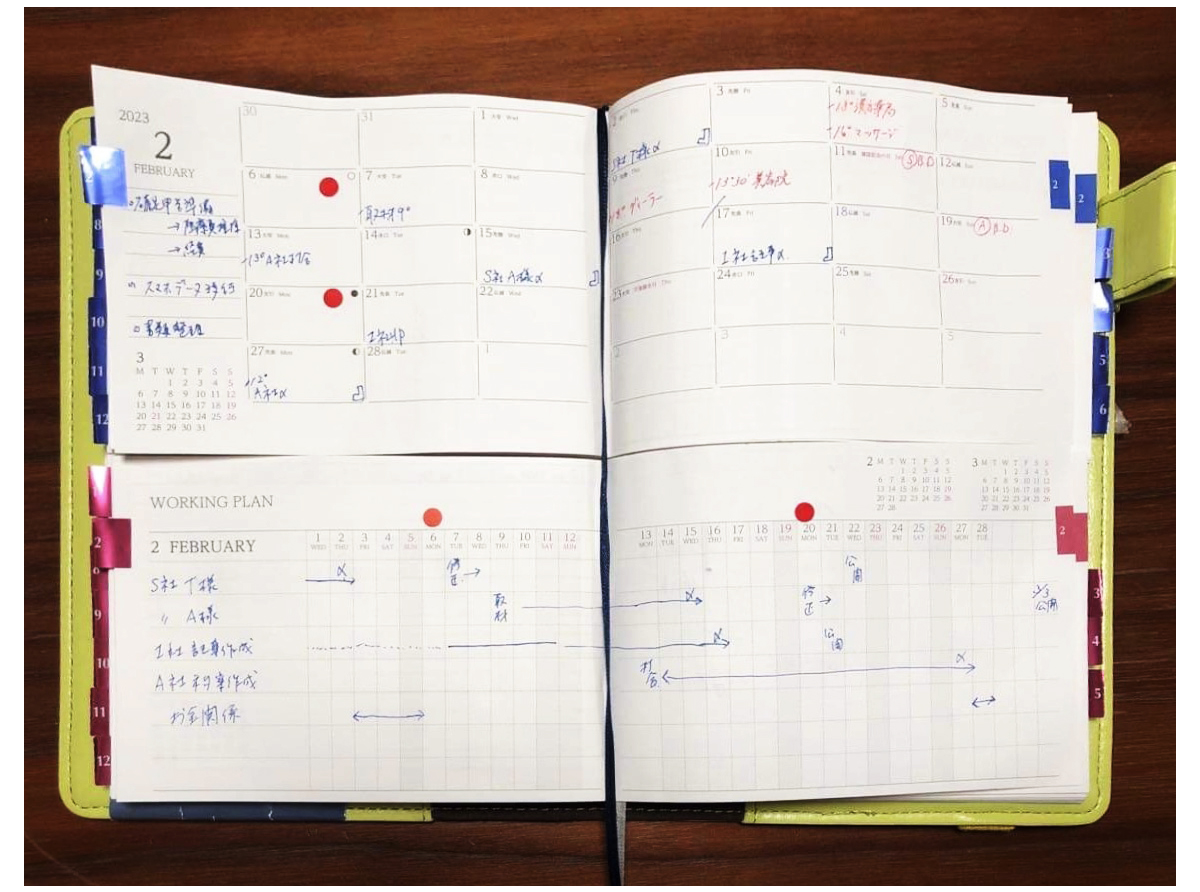 2023
2
FEBRUARY
→経費
スマホデータ移行
書類整理
3
M T W T F S S
1 2 3 4 5
6 7 8 9 10 11 12
13 14 15 16 17 18 19
20 21 22 23 24 25 26
27 28 29 30 31
30 31 1 Wed
6 Mon 7 Tue 8 Wed
取材9°
13 Mon 14 Tue 15 Wed
13°A社打合
S社 A様〆
20 Mon 21 Tue 22 Wed
27 Mon 28 Tue 1
12°
A社〆
2 Thu 3 Fri 4 Sat 5 Sun
S社 T様〆
13°漢方薬局
16°マッサージ
9 Thu 10 Fri 11 Sat 12 Sun
18°ディーラー
13°30'美容院
Ⓢ B.D
16 Thu 17 Fri 18 Sat 19 Sun
I社記事〆
Ⓐ B.D
23 Thu 24 Fri 25 Sat 26 Sun
2 3 4 5
8
9
10
11
12
2
2
3
5
6
WORKING PLAN
2 FEBRUARY
1 2 3 4 5 6 7 8 9 10 11 12
WED THU FRI SAT SUN MON TUE WED THU FRI SAT SUN
13 14 15 16 17 18 19 20 21 22 23 24 25 26 27 28
MON TUE WED THU FRI SAT SUN MON TUE WED THU FRI SAT SUN MON TUE
2 M T W T F S S
1 2 3 4 5
6 7 8 9 10 11 12
13 14 15 16 17 18 19
20 21 22 23 24 25 26
27 28
3 M T W T F S S
1 2 3 4 5
6 7 8 9 10 11 12
13 14 15 16 17 18 19
20 21 22 23 24 25 26
27 28 29 30 31
S社 T様 〆 修正→ 公開
〃 A様 取材 〆 修正→ 3/3公開
I社 記事作成 〆 公開
A社 記事作成 打合 〆
お金関係
2
9
10
11
12
2
3
4
5